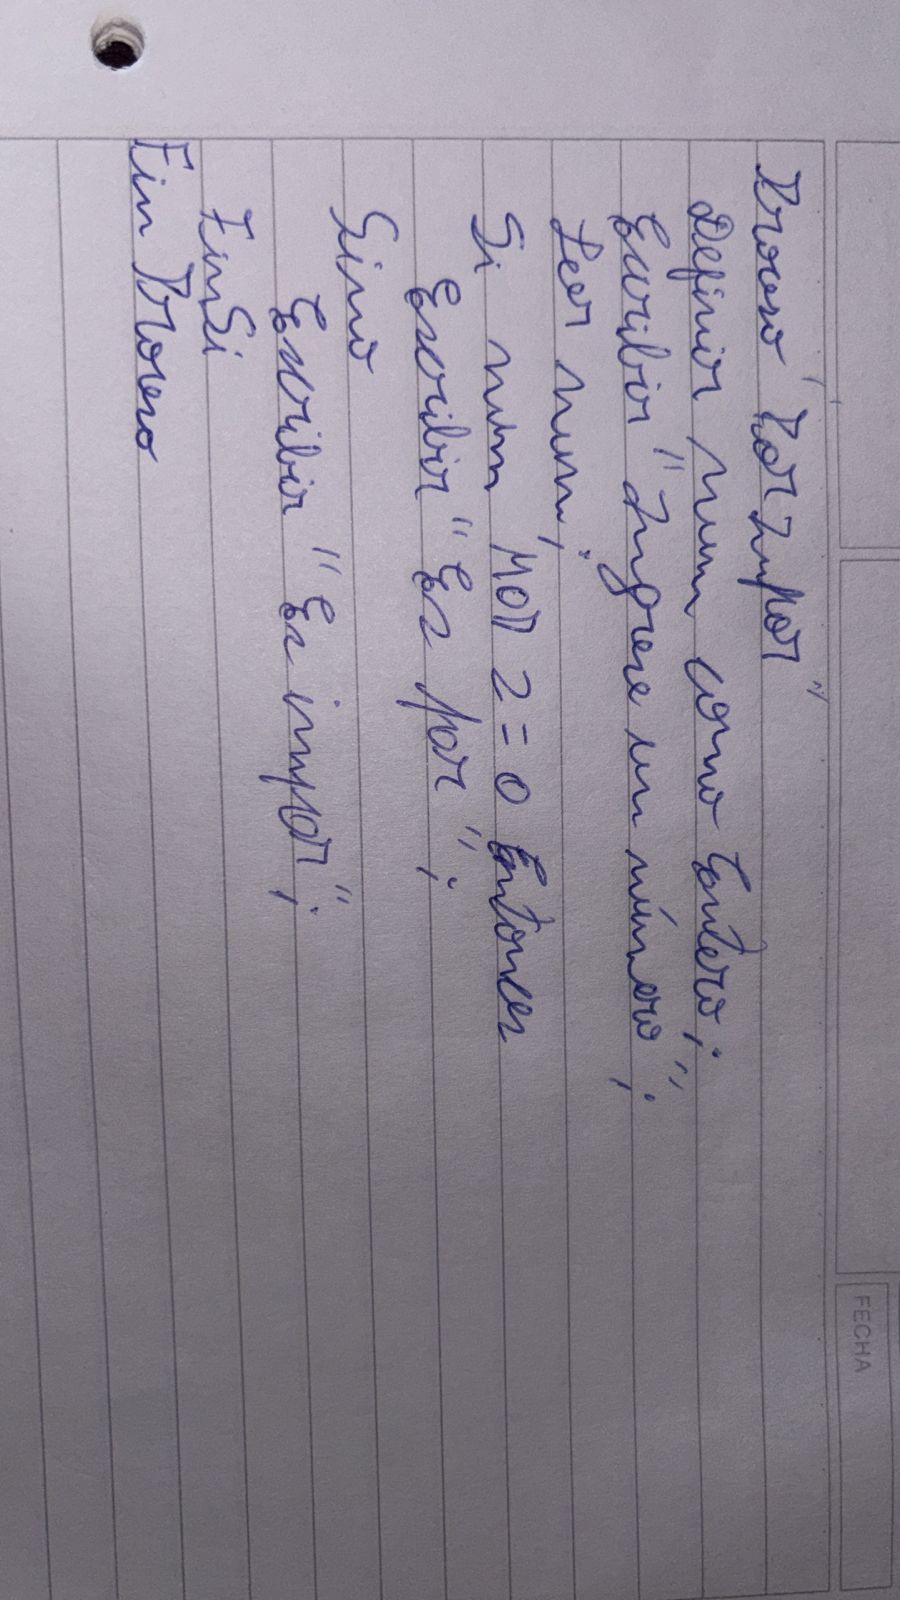 FECHA
Proceso "ParImpar"
Definir num como Entero;
Escribir "Ingrese un número";
Leer num;
Si num MOD 2 = 0 Entonces
Escribir "Es par";
Sino
Escribir "Es impar";
FinSi
Fin Proceso